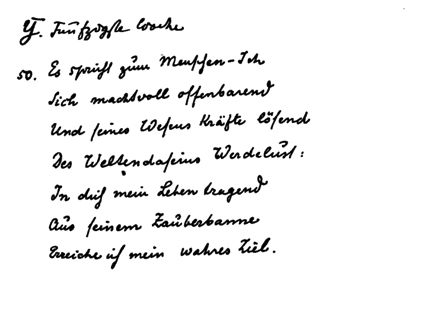 Y. Fünfzigste Woche
50. Es spricht zum Menschen-Ich
Sich machtvoll offenbarend
Und seines Wesens Kräfte lösend
Des Weltendaseins Werdelust:
In dich mein Leben tragend
Aus seinem Zauberbanne
Erreiche ich mein wahres Ziel.